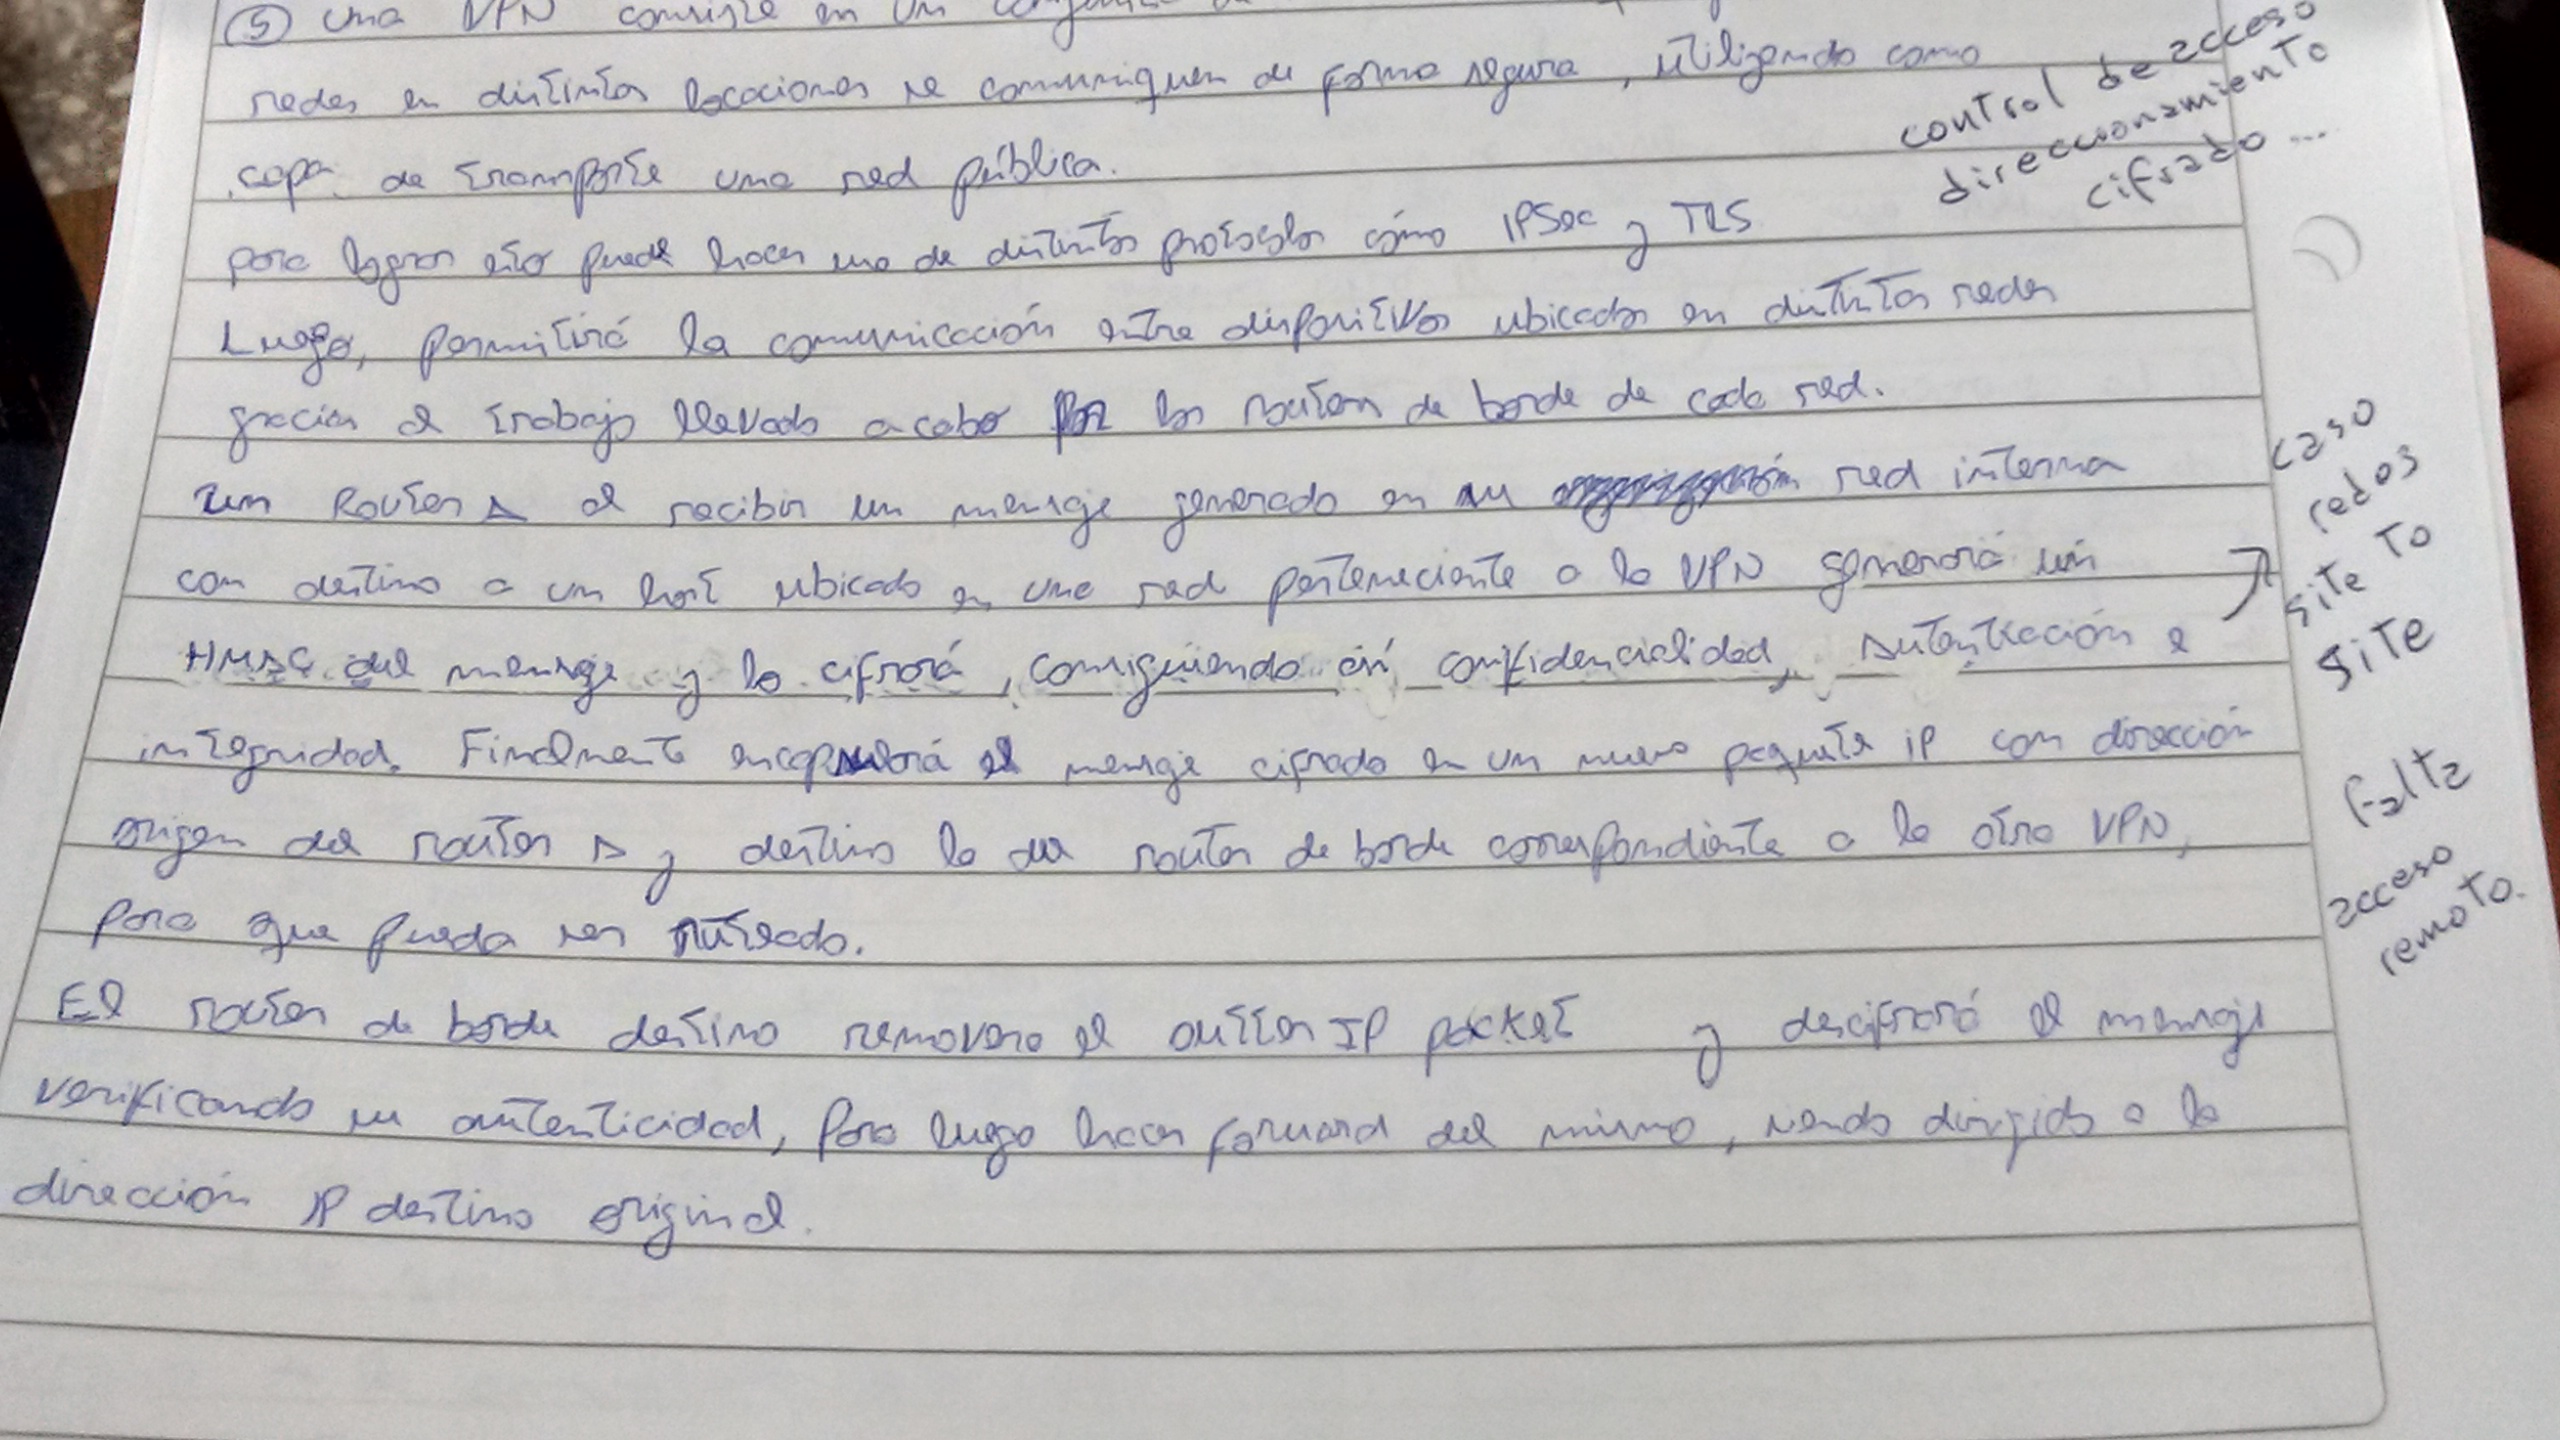 ⑤ Una VPN consiste en un
redes en distintas locaciones se comuniquen de forma segura, utilizando como
capa de transporte una red pública.
para lograr esto puede hacer uso de distintos protocolos cómo IPSec y TLS
Luego, permitirá la comunicación entre dispositivos ubicados en distintas redes
gracias al trabajo llevado a cabo por los routers de borde de cada red.
Un Router A al recibir un mensaje generado en su red interna
con destino a un host ubicado en una red perteneciente a la VPN generará un
HMAC del mensaje y lo cifrará, consiguiendo así confidencialidad, Autenticación e
integridad. Finalmente encapsulará el mensaje cifrado en un nuevo paquete IP con dirección
origen del router A y destino la del router de borde correspondiente a la otra VPN,
para que pueda ser ruteado.
El router de borde destino removera el outter IP packet y descifrará el mensaje
verificando su autenticidad, para luego hacer forward del mismo, siendo dirigido a la
dirección IP destino original.
control de acceso
direccionamiento
cifrado ...
caso
redes
site to
site
falta
acceso
remoto.